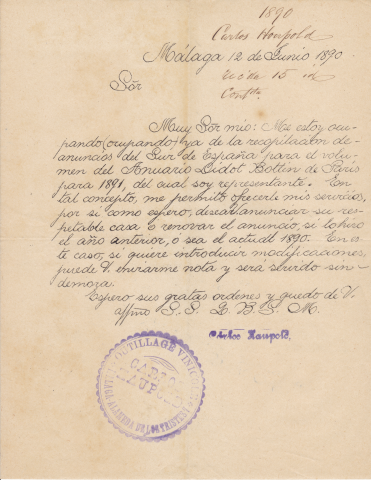 1890
Carlos Haupold
Málaga 12 de Junio 1890
15 id
Contda
Sōr
Muy Sōr mio: Me estoy ocu-
pando (ocupando) ya de la recopilacion de
anuncios del Sur de España para el volu-
men del Anuario Didot Bottin de Paris
para 1891, del cual soy representante. En
tal concepto, me permito ofrecerle mis servicios,
por si como espero, desea anunciar su res-
petable casa o renovar el anuncio, si lo hizo
el año anterior, ó sea el actual 1890. En es-
te caso, si quiere introducir modificaciones,
puede V. enviarme nota y será servido sin
demora.
Espero sus gratas ordenes y quedo de V.
affmo S. S. Q. B. S. M.
Carlos Haupold.
OUTILLAGE VINICOLE
CARLOS
HAUPOLD